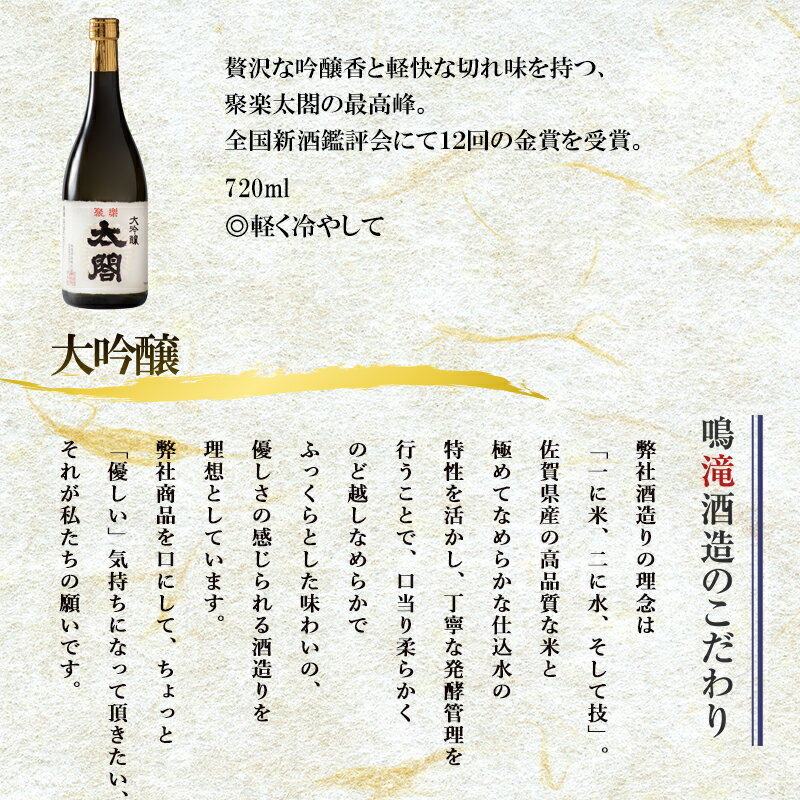 贅沢な吟醸香と軽快な切れ味を持つ、
聚楽太閤の最高峰。
全国新酒鑑評会にて12回の金賞を受賞。
720ml
◎軽く冷やして
聚樂
大吟醸
太閤
大吟醸
鳴滝酒造のこだわり
弊社酒造りの理念は
「一に米、二に水、そして技」。
佐賀県産の高品質な米と
極めてなめらかな仕込水の
特性を活かし、丁寧な発酵管理を
行うことで、口当り柔らかく
のど越しなめらかで
ふっくらとした味わいの、
優しさの感じられる酒造りを
理想としています。
弊社商品を口にして、ちょっと
「優しい」気持ちになって頂きたい、
それが私たちの願いです。